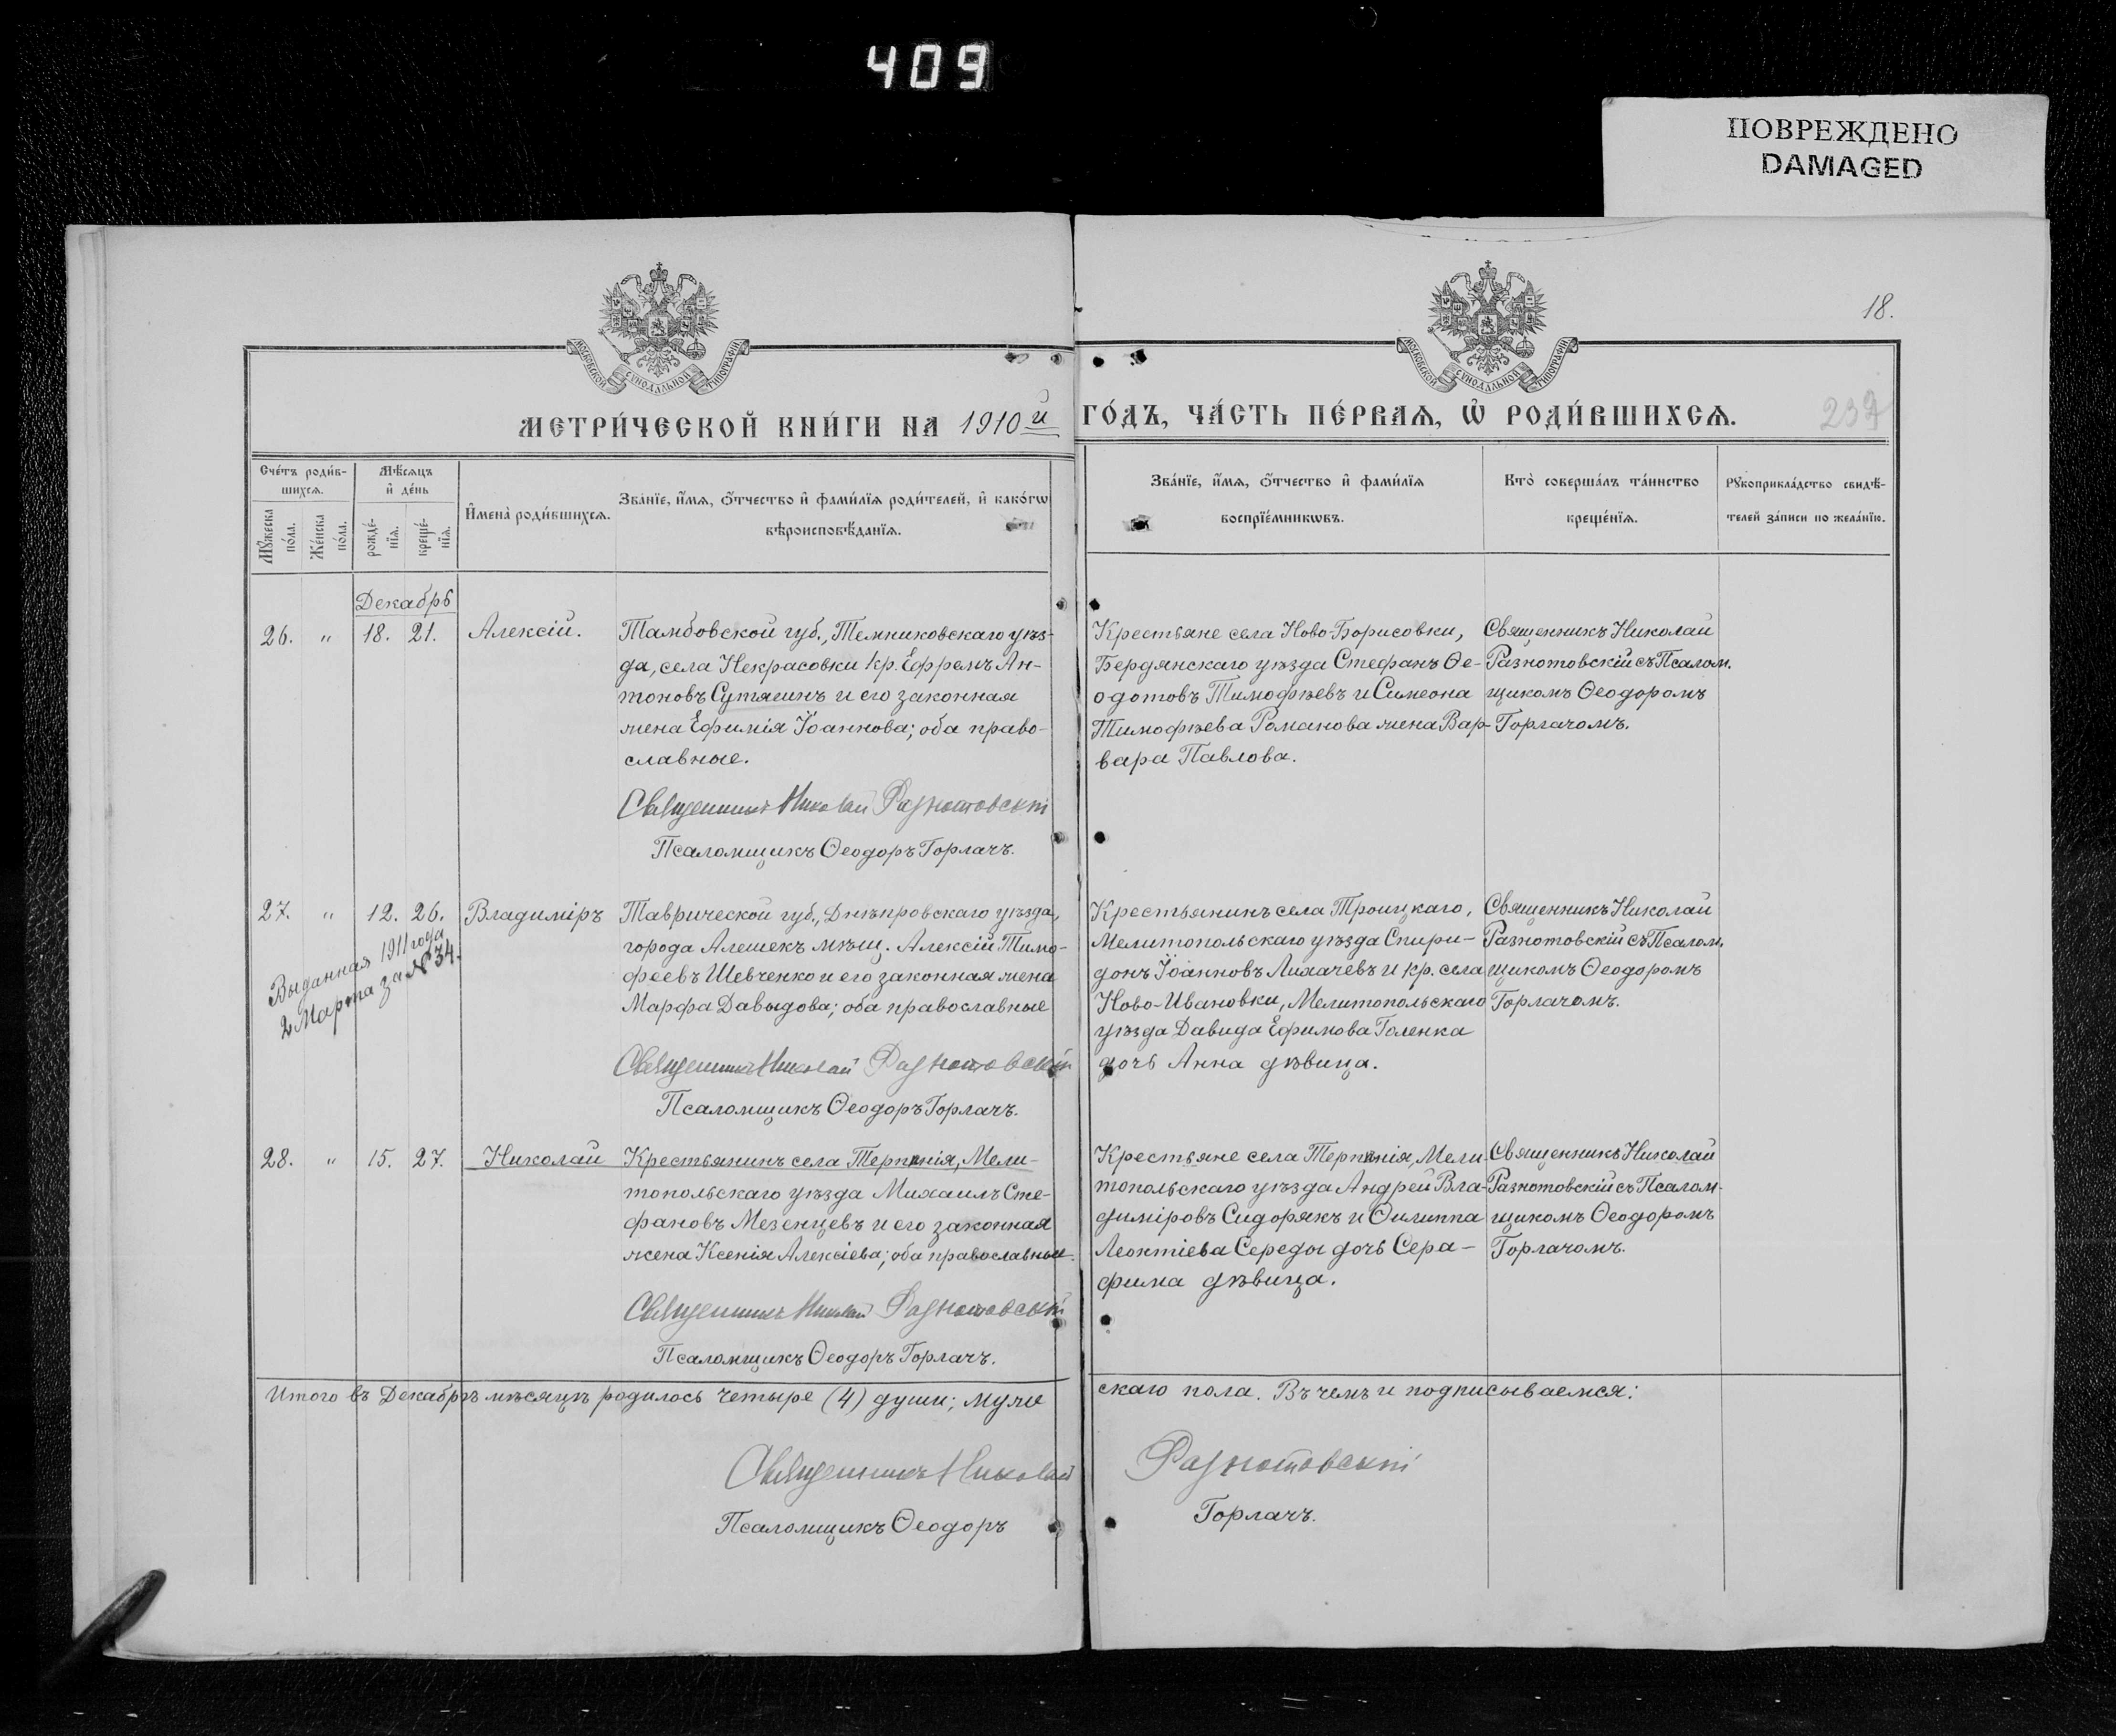 409
ПОВРЕЖДЕНО
DAMAGED
18.
МОСКОВСКОЙ СУНОДАЛЬНОЙ ТИПОГРАФІИ
МОСКОВСКОЙ СУНОДАЛЬНОЙ ТИПОГРАФІИ
МЕТРИ́ЧЕСКОЙ КНИ́ГИ НА 1910й
ГО́ДЪ, ЧА́СТЬ ПЕ́РВАѦ, Ѡ҆ РОДИ́ВШИХСѦ.
237
Сче́тъ роди́в-
шихсѧ.
Мꙋ́жеска
по́ла.
Же́нска
по́ла.
Мѣ́сѧцъ
и҆ де́нь
рожде́-
нїѧ.
креще́-
нїѧ.
И҆мена̀ роди́вшихсѧ.
Зва́нїе, и҆́мѧ, ѻ҆́тчество и҆ фами́лїѧ роди́телей, и҆ како́гѡ
вѣроисповѣ́данїѧ.
Зва́нїе, и҆́мѧ, ѻ҆́тчество и҆ фами́лїѧ
воспрїе́мникѡвъ.
Кто̀ соверша́лъ та́инство
креще́нїѧ.
Рꙋкоприкла́дство свидѣ́-
телей за́писи по жела́нїю.
Декабрь
26. " 18. 21. Алексій.
Тамбовской губ., Темниковскаго уѣз-
да, села Некрасовки кр. Ефремъ Ан-
тоновъ Сутягинъ и его законная
жена Ефимія Іоаннова; оба право-
славные.
Священникъ Николай Разнотовскій
Псаломщикъ Ѳеодоръ Горлачъ.
Крестьяне села Ново-Борисовки,
Бердянскаго уѣзда Стефанъ Ѳе-
одотовъ Тимофѣевъ и Симеона
Тимофѣева Романова жена Вар-
вара Павлова.
Священникъ Николай
Разнотовскій съ Псалом-
щикомъ Ѳеодоромъ
Горлачомъ.
27. " 12. 26. Владиміръ
Выданная 1911 года
2 Марта за № 34.
Таврической губ., Днѣпровскаго уѣзда,
города Алешекъ мѣщ. Алексій Тимо-
феевъ Шевченко и его законная жена
Марфа Давыдова; оба православные
Священникъ Николай Разнотовскій
Псаломщикъ Ѳеодоръ Горлачъ.
Крестьянинъ села Троицкаго,
Мелитопольскаго уѣзда Спири-
донъ Іоанновъ Лихачевъ и кр. села
Ново-Ивановки, Мелитопольскаго
уѣзда Давида Ефимова Голенка
дочь Анна дѣвица.
Священникъ Николай
Разнотовскій съ Псалом-
щикомъ Ѳеодоромъ
Горлачомъ.
28. " 15. 27. Николай
Крестьянинъ села Терпѣнія, Мели-
топольскаго уѣзда Михаилъ Сте-
фановъ Мезенцевъ и его законная
жена Ксенія Алексіева; оба православные.
Священникъ Николай Разнотовскій
Псаломщикъ Ѳеодоръ Горлачъ.
Крестьяне села Терпѣнія, Мели-
топольскаго уѣзда Андрей Вла-
диміровъ Сидорякъ и Филиппа
Леонтіева Середы дочь Сера-
фима дѣвица.
Священникъ Николай
Разнотовскій съ Псалом-
щикомъ Ѳеодоромъ
Горлачомъ.
Итого въ Декабрѣ мѣсяцѣ родилось четыре (4) души; муже
скаго пола. Въ чемъ и подписываемся:
Священникъ Николай Разнотовскій
Псаломщикъ Ѳеодоръ Горлачъ.